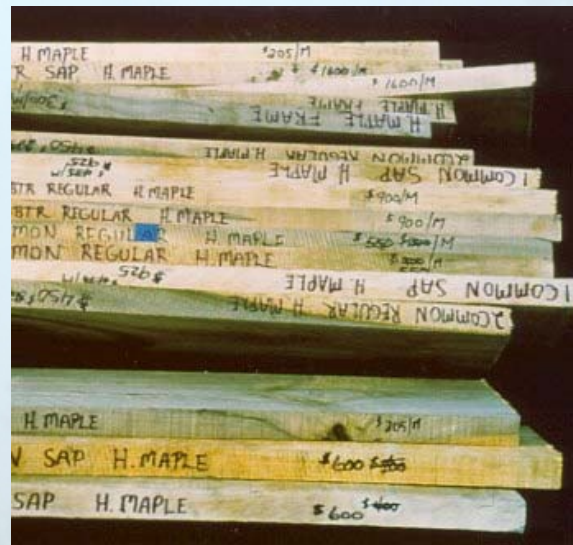 H. MAPLE $205/M
R SAP H. MAPLE $1600/M
$1600/M
H. MAPLE
H. MAPLE FRAME
H. MAPLE FRAME $300/M
2 COMMON REGULAR H. MAPLE $450
1 COMMON SAP H. MAPLE $925
BTR REGULAR H. MAPLE $900/M
BTR REGULAR H. MAPLE $900/M
MON REGULAR H. MAPLE $550 /M
MON REGULAR H. MAPLE
1 COMMON SAP H. MAPLE $925
2 COMMON REGULAR H. MAPLE $450
H. MAPLE $205/M
SAP H. MAPLE $600
SAP H. MAPLE $600 $400